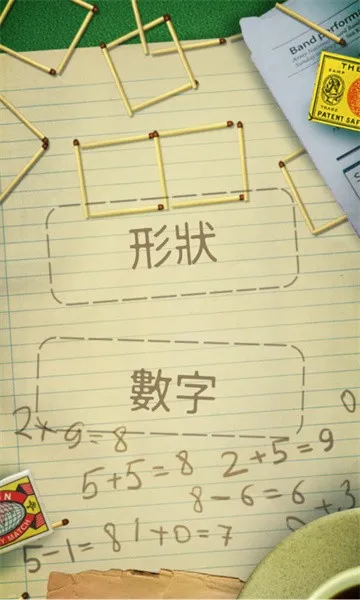 Band perform
THE
TRADE
MARK
PATENT SAF
形狀
數字
2+9=8
0
5+5=8
2+5=9
8-6=6
5-1=8
1+0=7
2+3